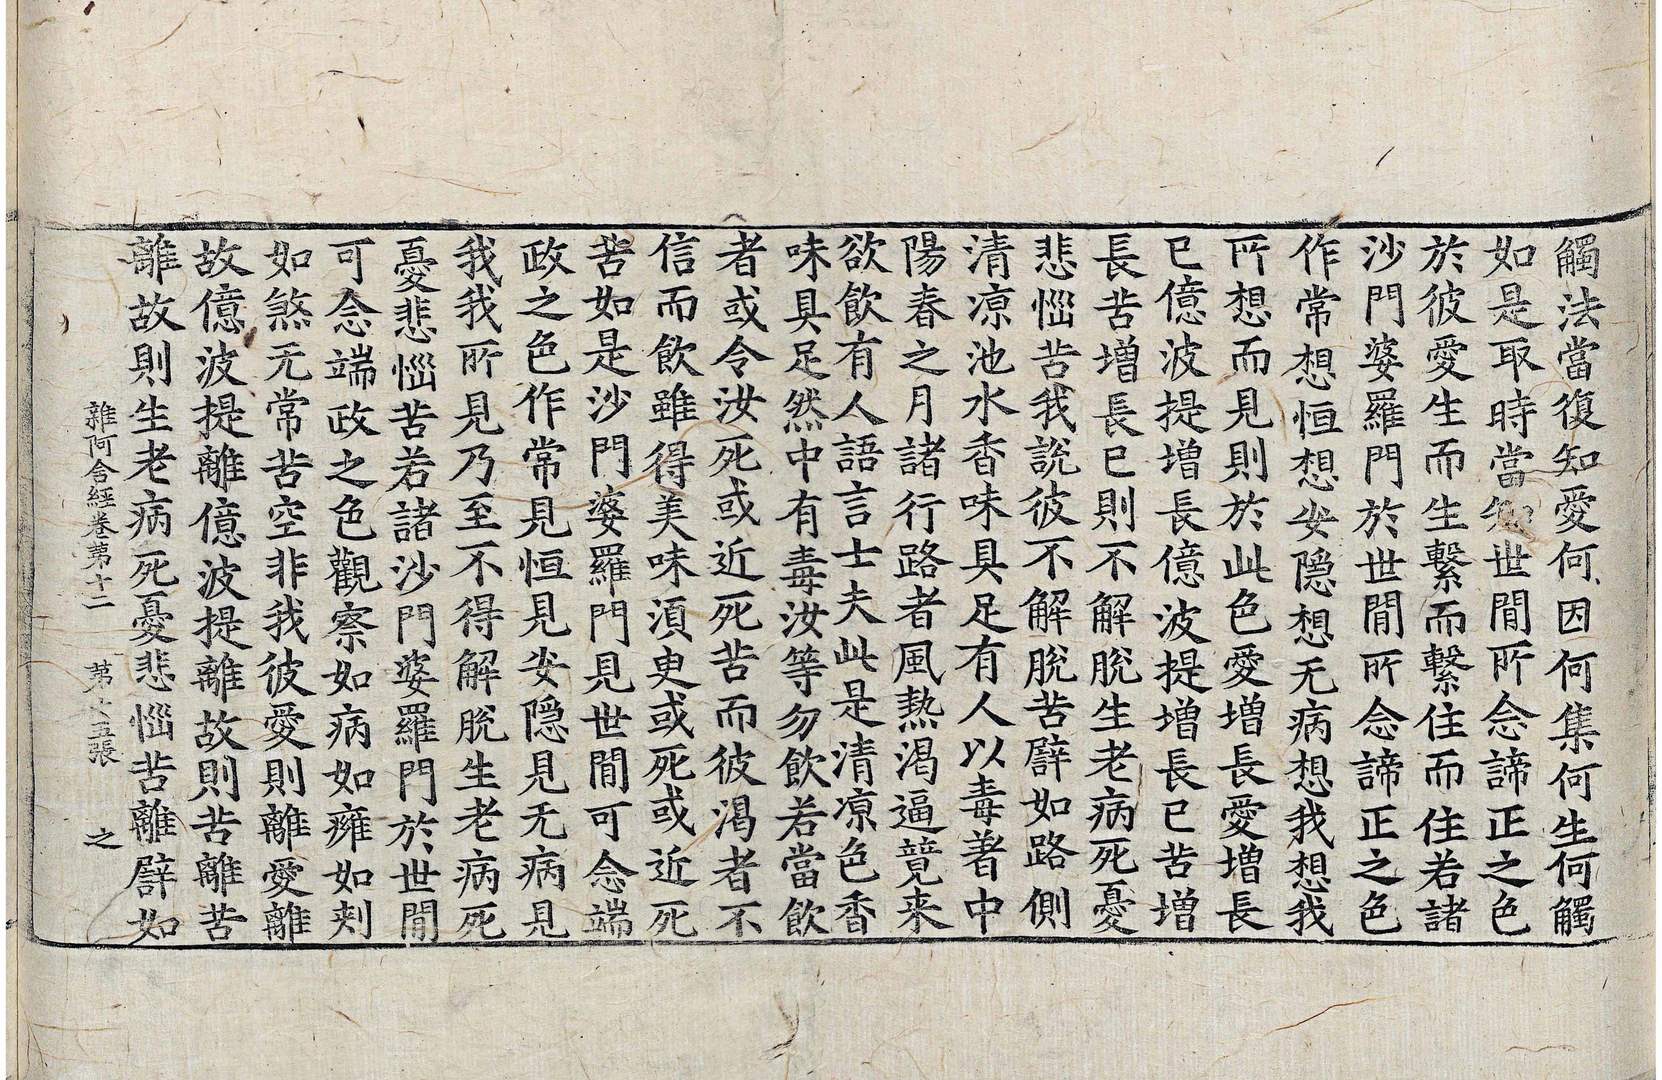 觸法當復知愛何因何集何生何觸
如是取時當知世閒所念諦正之色
於彼愛生而生繫而繫住而住若諸
沙門婆羅門於世閒所念諦正之色
作常想恒想安隱想无病想我想我
所想而見則於此色愛增長愛增長
已億波提增長億波提增長已苦增
長苦增長已則不解脫生老病死憂
悲惱苦我說彼不解脫苦譬如路側
清凉池水香味具足有人以毒著中
陽春之月諸行路者風熱渴逼競来
欲飲有人語言士夫此是清凉色香
味具足然中有毒汝等勿飲若當飲
者或令汝死或近死苦而彼渴者不
信而飲雖得美味須臾或死或近死
苦如是沙門婆羅門見世閒可念端
政之色作常見恒見安隱見无病見
我我所見乃至不得解脫生老病死
憂悲惱苦若諸沙門婆羅門於世閒
可念端政之色觀察如病如癰如刾
如煞无常苦空非我彼愛則離愛離
故億波提離億波提離故則苦離苦
離故則生老病死憂悲惱苦離譬如
雜阿含經卷第十二 第十五張 之